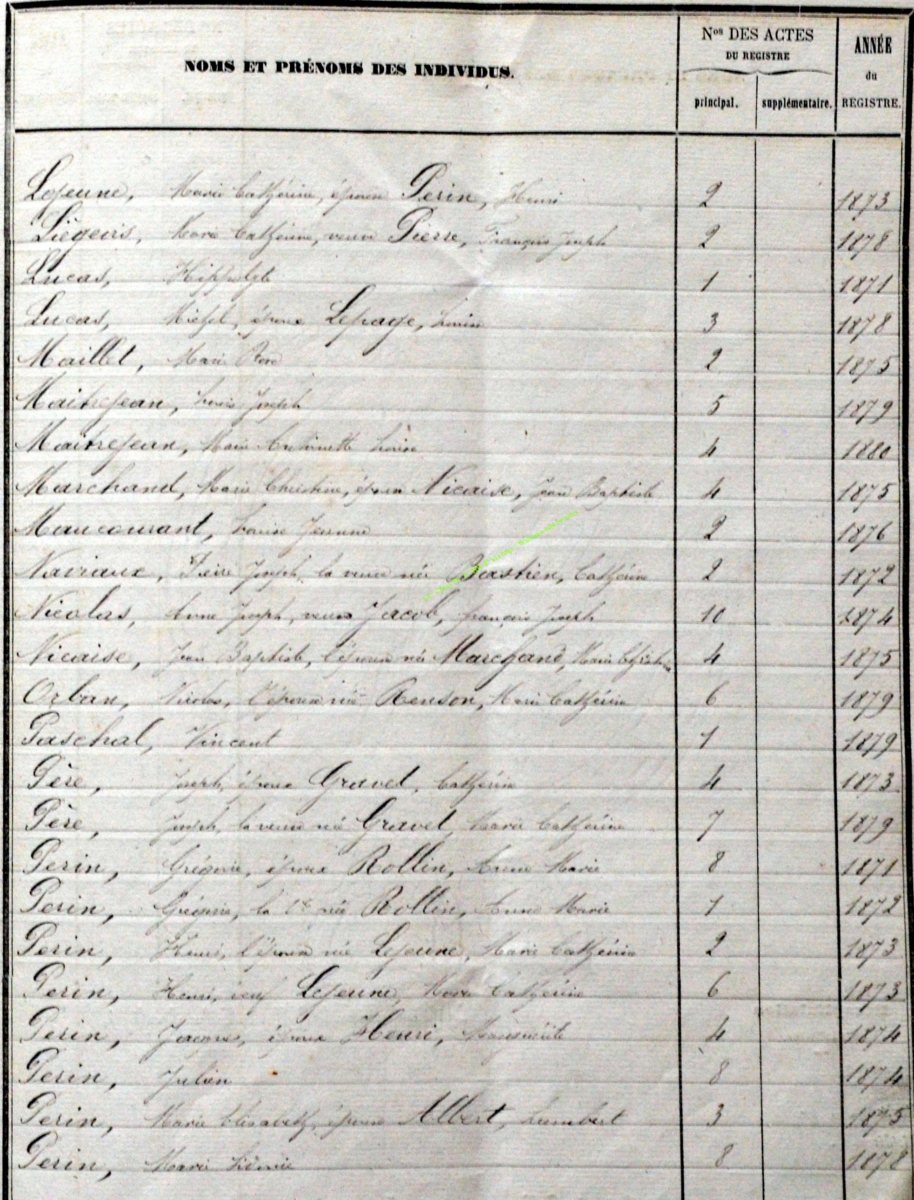 NOMS ET PRÉNOMS DES INDIVIDUS.
Nos DES ACTES
DU REGISTRE
principal.
supplémentaire.
ANNÉE
du
REGISTRE.
Lejeune, Marie Cathérine, épouse Perin, Henri 2 1873
Liégeois, Marie Cathérine, veuve Pierre, François Joseph 2 1878
Lucas, Hippolyte 1 1871
Lucas, Michel, époux Lepage, Louise 3 1878
Maillet, Marie Rose 2 1875
Maitrejean, Louis Joseph 5 1879
Maitrejean, Marie Antoinette Louise 4 1880
Marchand, Marie Christine, épouse Nicaise, Jean Baptiste 4 1875
Maucourant, Louise 2 1876
Naviaux, Pierre Joseph, la veuve née Bastien, Cathérine 2 1872
Nicolas, Anne Joseph, veuve Jacob, françois Joseph 10 1874
Nicaise, Jean Baptiste, l'épouse née Marchand, Marie Christine 4 1875
Orban, Nicolas, l'épouse née Renson, Marie Cathérine 6 1879
Paschal, Vincent 1 1879
Père, Joseph, époux Gravet, Cathérine 4 1873
Père, Joseph, la veuve née Gravet, Marie Cathérine 7 1879
Perin, Grégoire, époux Rollin, Anne Marie 8 1871
Perin, Grégoire, la Ve née Rollin, Anne Marie 1 1872
Perin, Henri, l'épouse née Lejeune, Marie Cathérine 2 1873
Perin, Henri, veuf Lejeune, Marie Cathérine 6 1873
Perin, Jacques, époux Henri, Marguerite 4 1874
Perin, Julien 8 1874
Perin, Marie Elisabeth, épouse Albert, Lambert 3 1875
Perin, Marie 8 1878